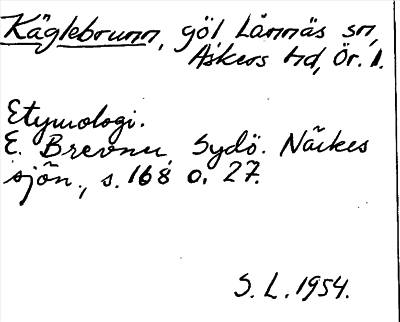 Käglebrunn, göl Lännäs sn,
Askers hd, Ör. l.
Etymologi.
E. Brevner, Sydö. Närkes
sjön., s. 168 o. 27.
S. L. 1954.